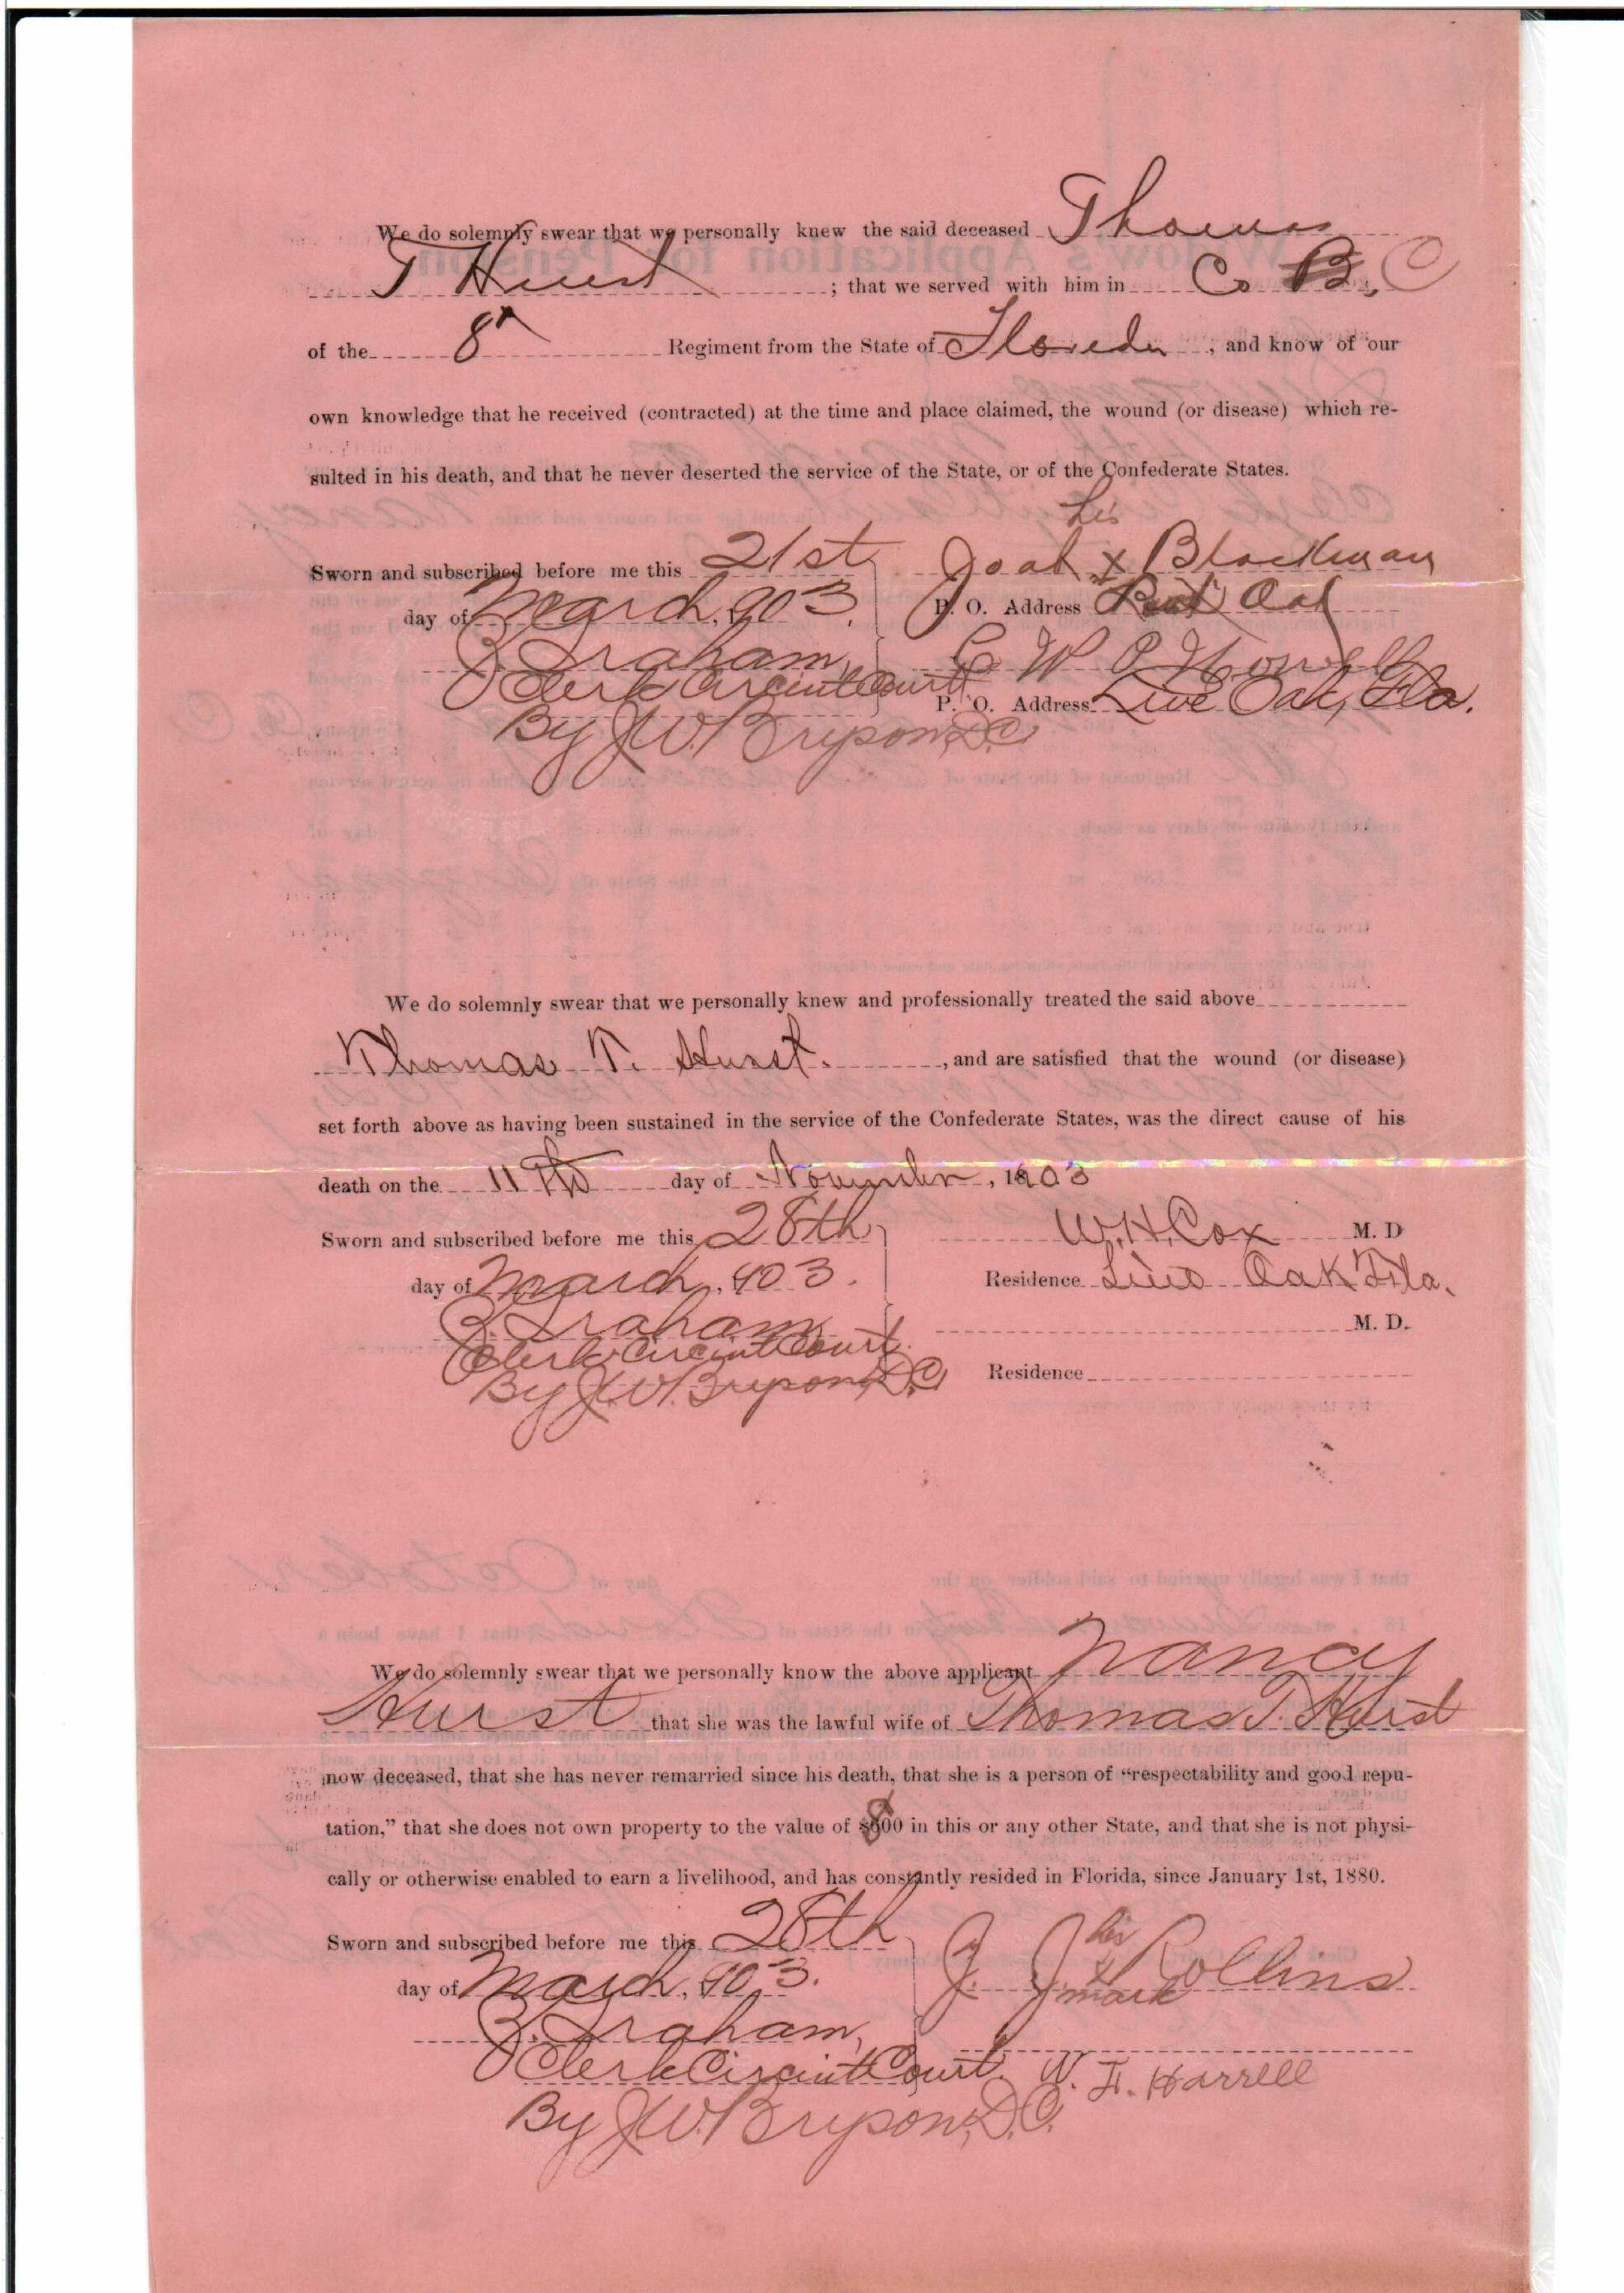 We do solemnly swear that we personally knew the said deceased Thomas
T Hurst ; that we served with him in Co B, C
of the 8th Regiment from the State of Florida, and know of our
own knowledge that he received (contracted) at the time and place claimed, the wound (or disease) which re-
sulted in his death, and that he never deserted the service of the State, or of the Confederate States.
his
Sworn and subscribed before me this 21st Joab x Blackman
day of March, 1903. P. O. Address Oak
Graham, C W P Howell
Clerk Circuit Court P. O. Address Live Oak, Fla.
By J.W. Bryson, D.C.
We do solemnly swear that we personally knew and professionally treated the said above
Thomas T. Hurst. , and are satisfied that the wound (or disease)
set forth above as having been sustained in the service of the Confederate States, was the direct cause of his
death on the 11th day of November, 1903
Sworn and subscribed before me this 28th W.H. Cox M. D
day of March, 1903. Residence Live Oak Fla.
Graham M. D.
Clerk Circuit Court.
By J.W. Bryson, D.C. Residence
We do solemnly swear that we personally know the above applicant Nancy
Hurst that she was the lawful wife of Thomas T. Hurst
now deceased, that she has never remarried since his death, that she is a person of “respectability and good repu-
tation,” that she does not own property to the value of $800 in this or any other State, and that she is not physi-
cally or otherwise enabled to earn a livelihood, and has constantly resided in Florida, since January 1st, 1880.
Sworn and subscribed before me this 28th J. J. his x mark Rollins
day of March, 1903.
Graham,
Clerk Circuit Court. W. H. Harrell
By J.W. Bryson, D.C.